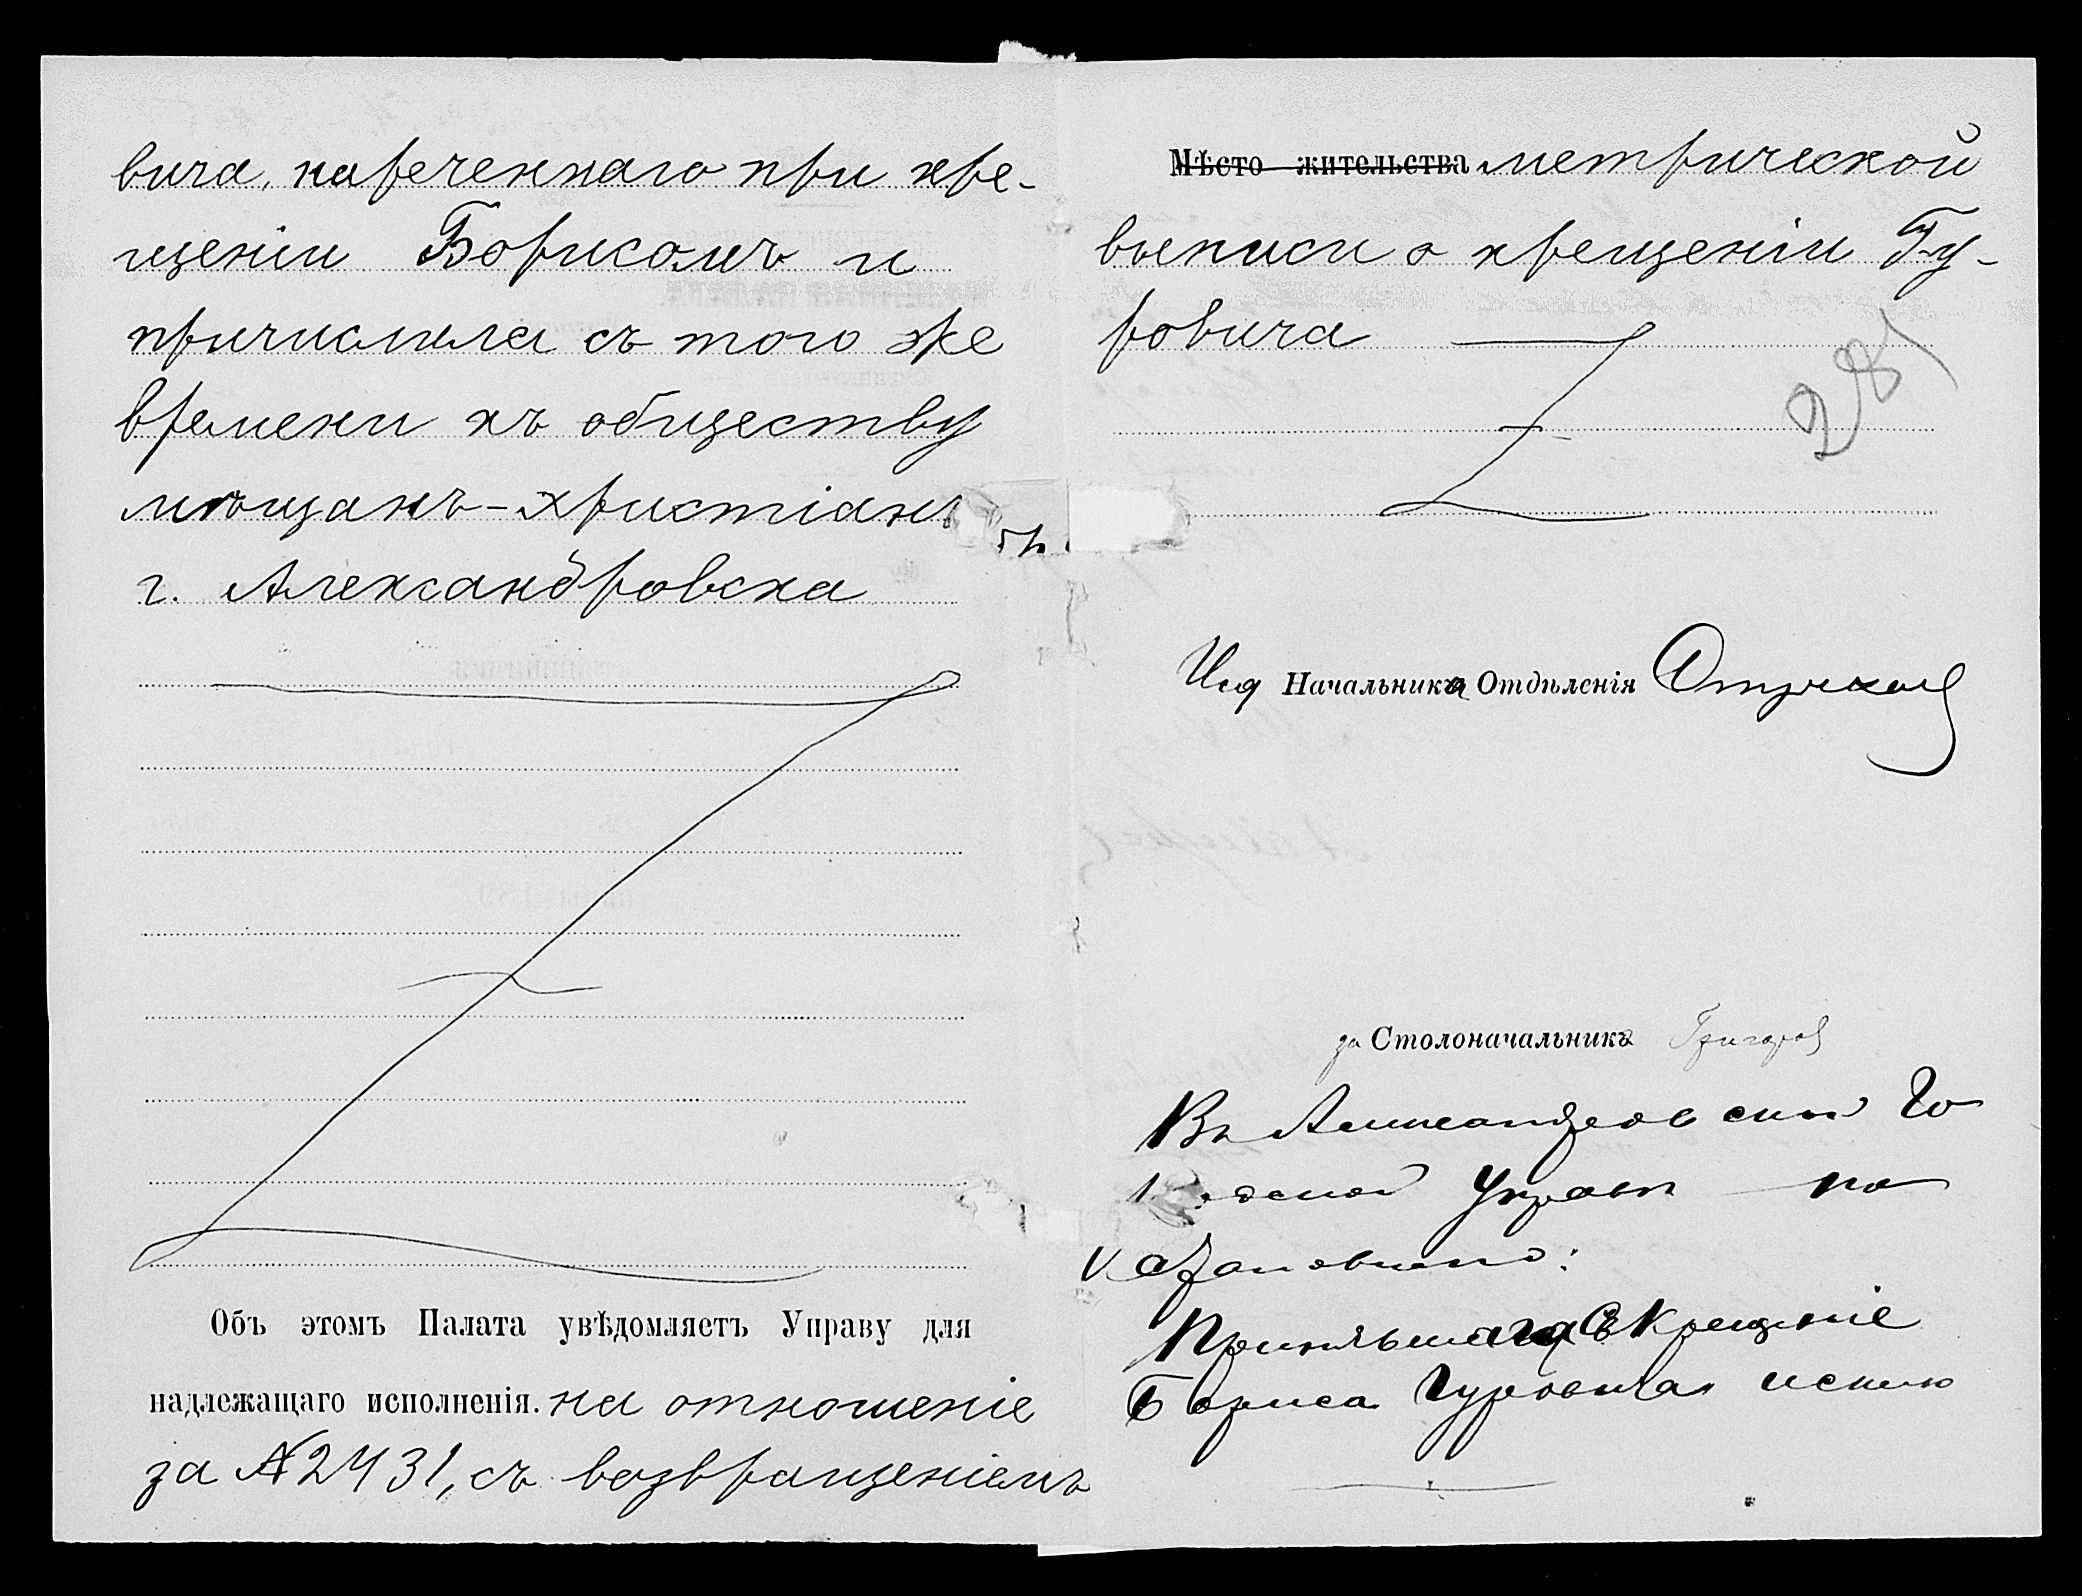 вича, нареченнаго при кре-
щеніи Борисомъ и
причислила съ того же
времени къ обществу
мѣщанъ-христіанъ
г. Александровска
Объ этомъ Палата увѣдомляетъ Управу для
надлежащаго исполненія. на отношеніе
за № 2431, съ возвращеніемъ
Мѣсто жительства метрической
выписи о крещеніи Гу-
ровича
281
Исд Начальника Отдѣленія
за Столоначальника Григоров
Въ Александровской Го
Управѣ по
Принявшаго Св Крещеніе
Бориса Гуровича